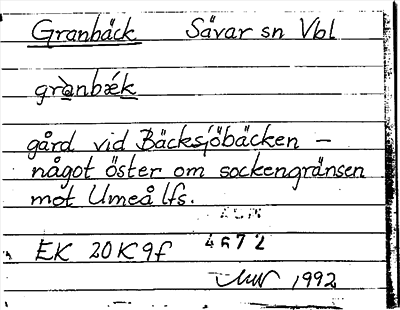 Granbäck Sävar sn Vbl
grànbǽk
gård vid Bäcksjöbäcken –
något öster om sockengränsen
mot Umeå lfs.
4672
EK 20K9f
1992